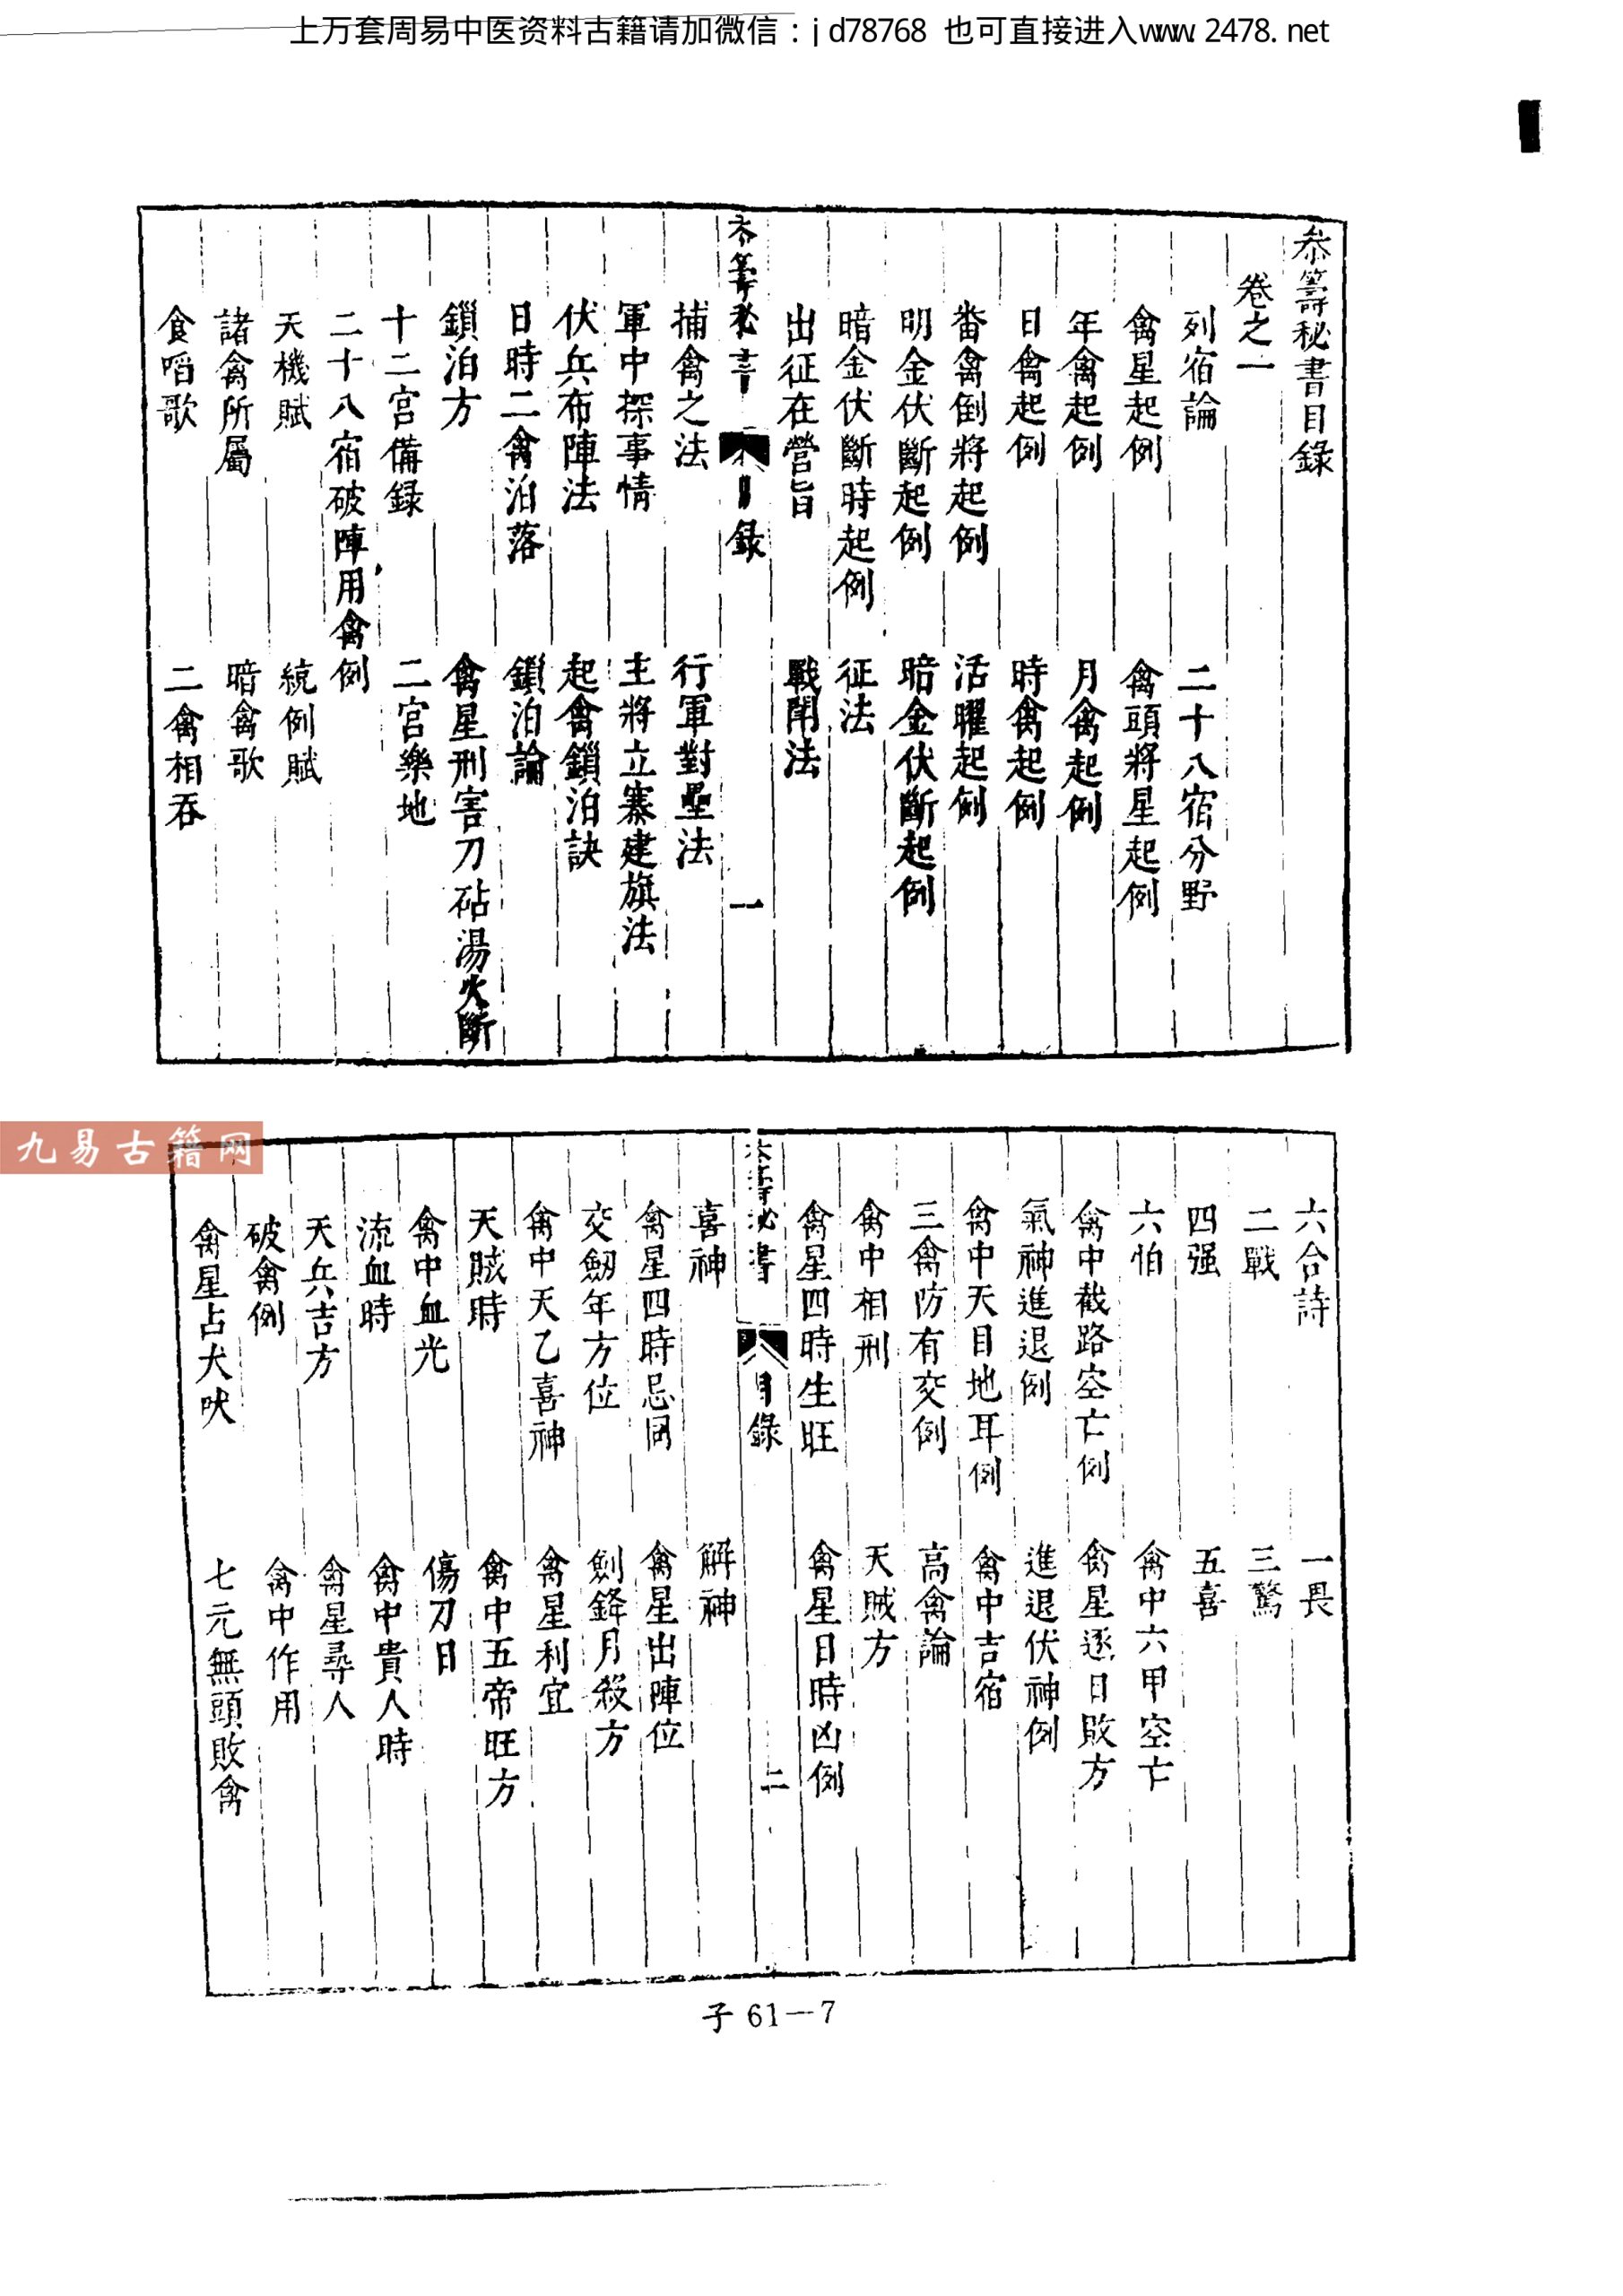 上万套周易中医资料古籍请加微信：jd78768 也可直接进入www.2478.net
叅籌秘書目錄
卷之一
列宿論 二十八宿分野
禽星起例 禽頭將星起例
年禽起例 月禽起例
日禽起例 時禽起例
畨禽倒將起例 活曜起例
明金伏斷起例 暗金伏斷起例
暗金伏斷時起例 征法
出征在營旨 戰鬧法
籌秘 目錄 一
捕禽之法 行軍對壘法
軍中探事情 主將立寨建旗法
伏兵布陣法 起禽鎖泊訣
日時二禽泊落 鎖泊論
鎖泊方 禽星刑害刀砧湯火斷
十二宮備録 二宮樂地
二十八宿破陣用禽例
天機賦 統例賦
諸禽所屬 暗禽歌
食啗歌 二禽相吞
九易古籍网
六合詩 一畏
二戰 三驚
四强 五喜
六怕 禽中六甲空亡
禽中截路空亡例 禽星逐日敗方
氣神進退例 進退伏神例
禽中天目地耳例 禽中吉宿
三禽防有交例 高禽論
禽中相刑 天賊方
禽星四時生旺 禽星日時凶例
籌秘書 目錄 二
喜神 解神
禽星四時忌同 禽星出陣位
交劔年方位 劍鋒月殺方
禽中天乙喜神 禽星利宜
天賊時 禽中五帝旺方
禽中血光 傷刀日
流血時 禽中貴人時
天兵吉方 禽星尋人
破禽例 禽中作用
禽星占犬吠 七元無頭敗禽
子 61—7